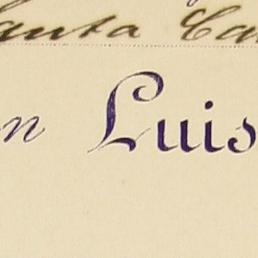 anta Ca
n Luis